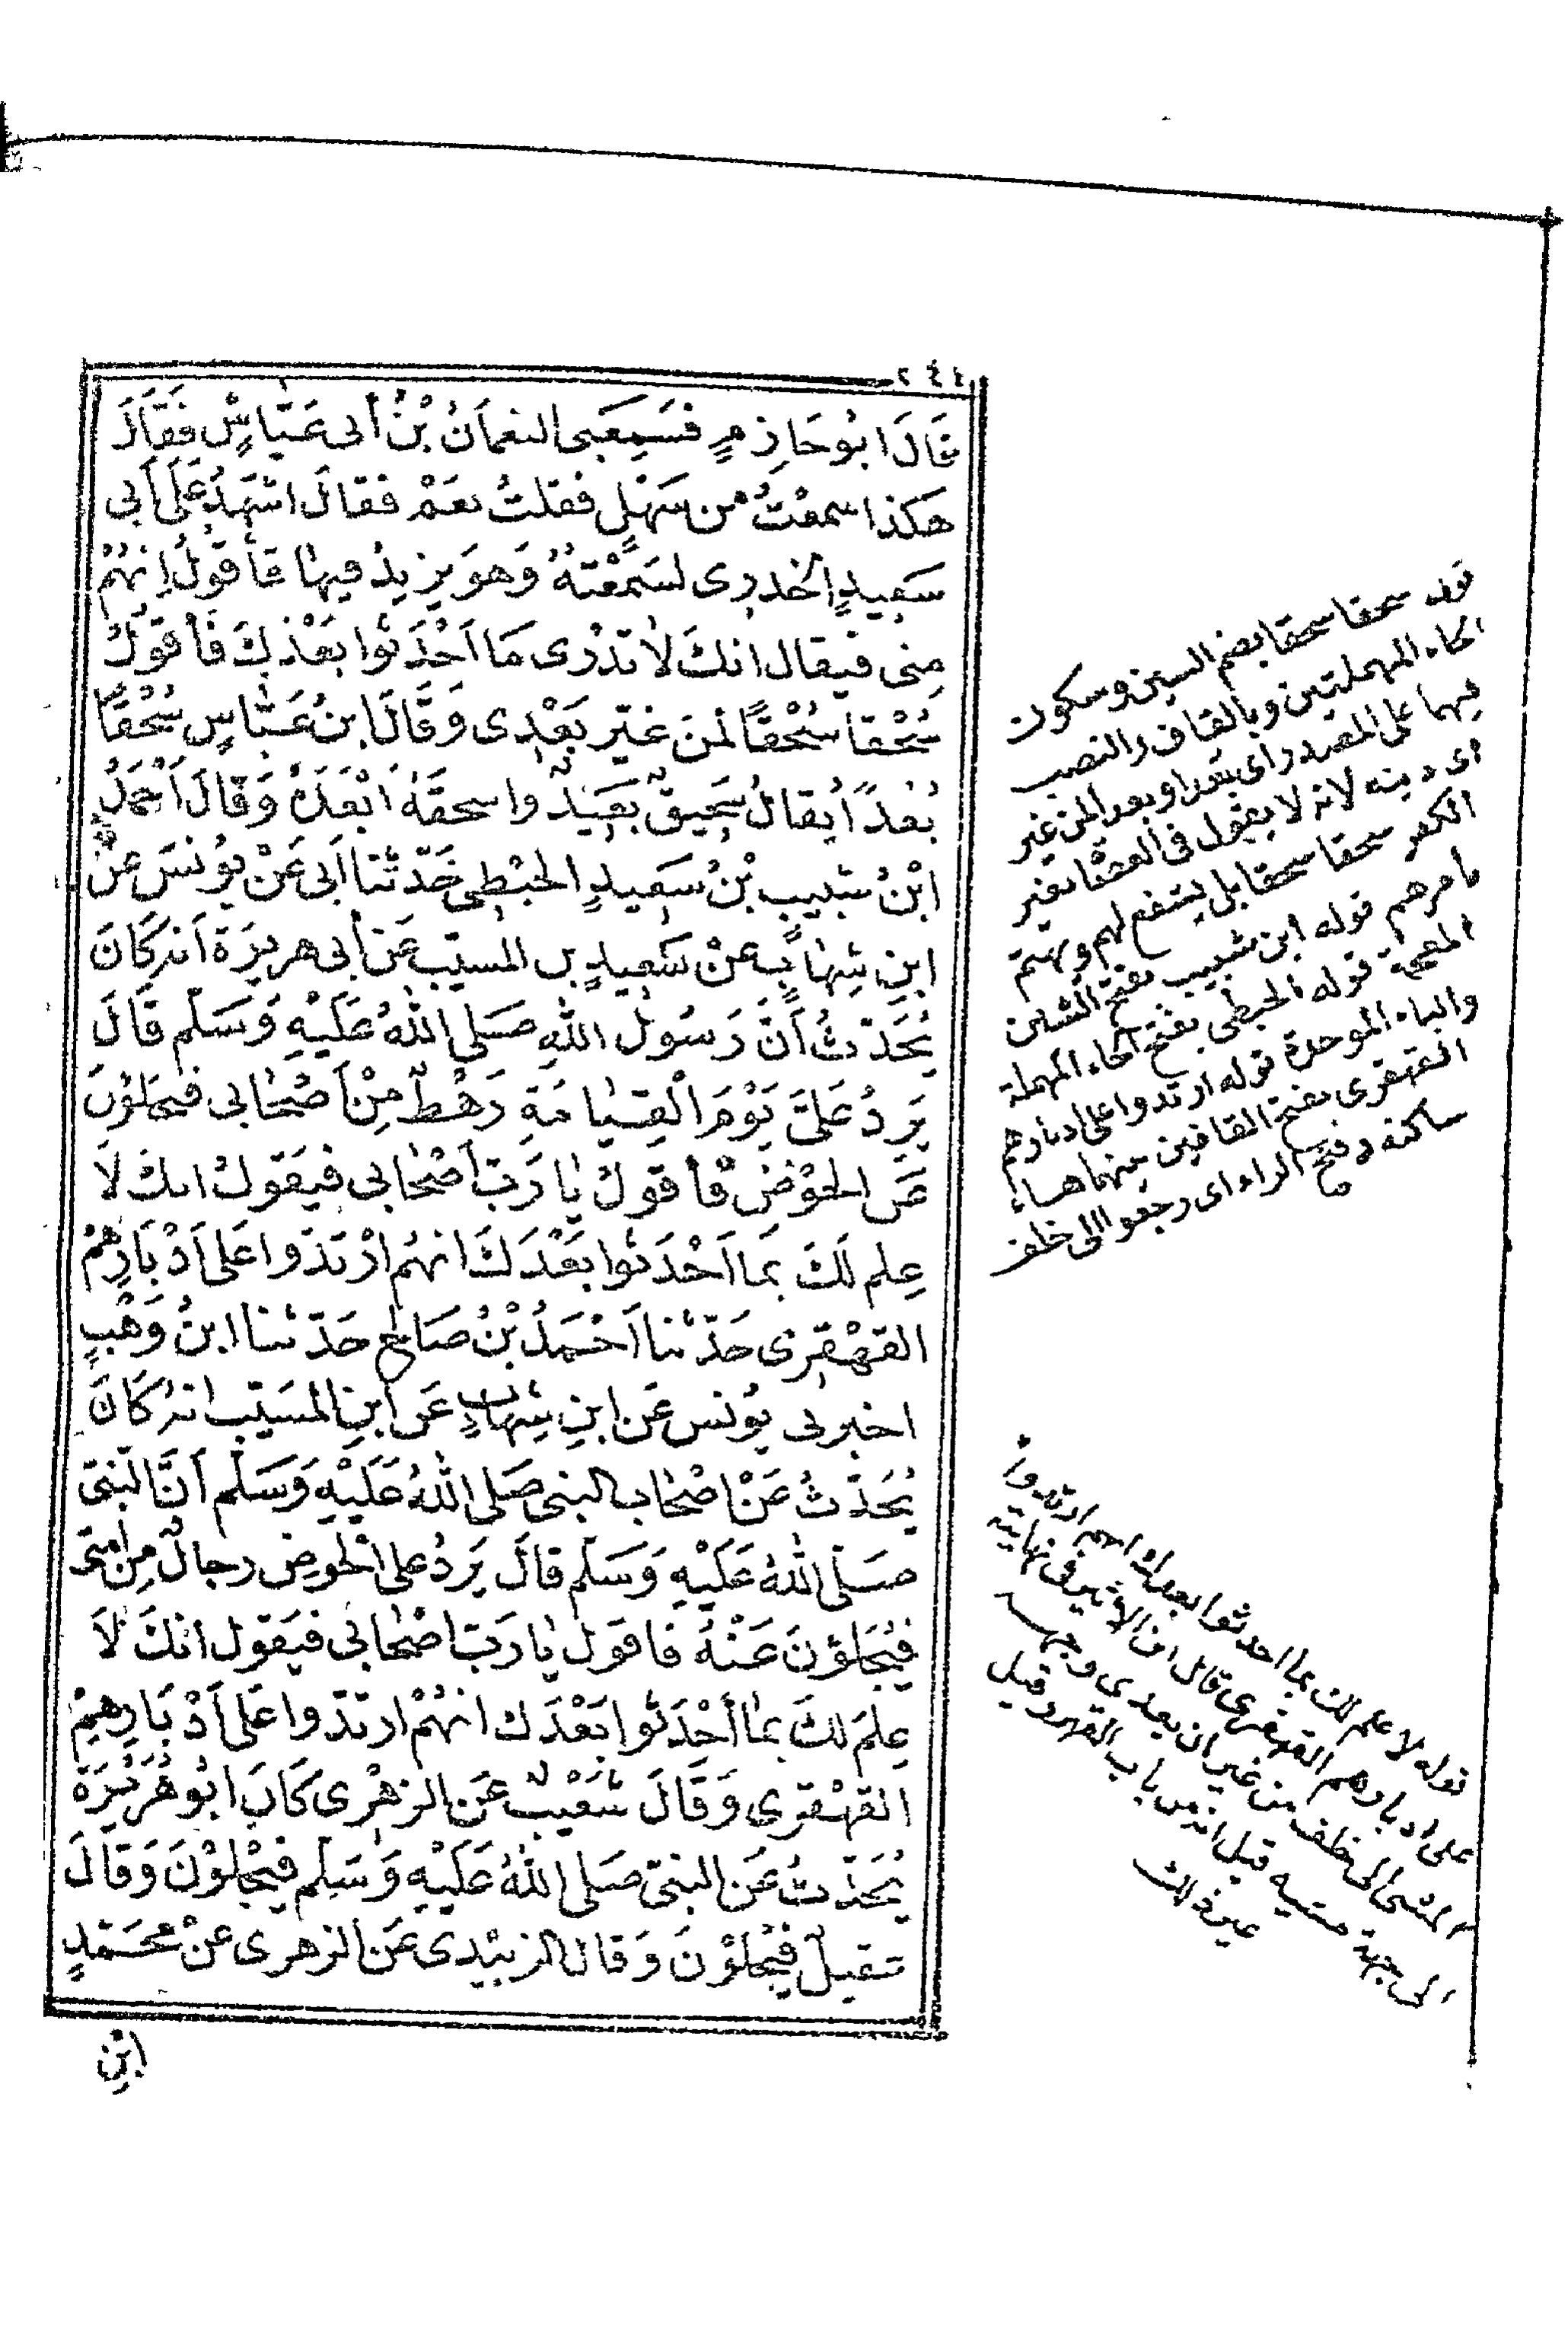 ٢٤٤
قَالَ ابُو حَازِمٍ فَسَمِعَنِى النعمَانُ بْنُ أَبى عَيَّاشٍ فَقَالَ
هَكَذا سمعْتَ من سَهْلٍ فقلتُ نعَمْ فقالَ اشْهَدُ عَلَى أَبى
سَعِيدٍ الخدرِى لسَمِعْتهُ وَهوَ يزِيدُ فيهَا فأقولُ اِنهُمْ
مِنى فيقال انكَ لاَ تدْرى مَا اَحْدَثوا بَعْدَكَ فَأَقولُ
سُحْقا سُحْقًا لمَنْ غيّر بَعْدِى وَقَالَ ابنُ عَبَّاسٍ سُحْقًا
بُعْدًا يُقالُ سَحِيقٌ بَعِيدٌ واسحقَهُ اَبْعَدَهُ وَقالَ اَحْمَدُ
ابْنُ شبيبِ بْنُ سَعِيدٍ الحَبَطِى حَدّثنا اَبى عَنْ يُونسَ عَنْ
ابنِ شِهَابٍ عَنْ سَعِيدٍ بن المسيّب عَن أبى هريرَة اَنه كَانَ
يُحَدّثُ أَنَّ رَسُولَ اللهِ صَلى اللهُ عَلَيْهِ وَسَلّم قَالَ
يَرِدُ عَلَىَّ يَوْمَ الْقِيَامَةِ رَهْطٌ مِنْ اَصْحَابى فيحَلؤنَ
عَن الحَوْضِ فأقولُ يَا رَبّ اَصْحَابى فيَقولُ انكَ لاَ
عِلم لَكَ بمَا اَحْدَثوا بَعْدَكَ انهُم ارْتدّوا عَلَى اَدْبَارِهِمْ
القهْقَرَى حَدّثنا اَحْمَدُ بْنُ صَالح حَدّثنا ابنُ وَهْبٍ
اخبرنى يُونس عَن ابنِ شِهَابٍ عَن ابنِ المسَيّب انهُ كَانَ
يُحَدّثُ عَنْ اَصْحَاب النبى صَلى اللهُ عَلَيْهِ وَسَلّم أنَّ النّبىّ
صَلى اللهُ عَلَيْهِ وَسَلّم قالَ يَرِدُ على الحوضِ رجالٌ مِن امتى
فيُحَلؤنَ عَنْهُ فاقول يَا رَبّ اصْحَابى فيَقول انكَ لاَ
عِلمَ لكَ بمَا أَحْدَثوا بَعْدَك انهُمْ ارتدّوا عَلَى اَدْبَارِهِمْ
القهْقرى وَقَالَ شُعَيْبٌ عَن الزهْرى كَانَ ابُو هُرَيْرَةَ
يُحَدّثُ عَن النبىّ صَلى اللهُ عَلَيْهِ وَسَلّم فيُجْلَوْنَ وَقَالَ
عقيلٌ فيُحلؤنَ وَقال الزبيْدى عَن الزهرى عَنْ محَمّدِ
ابْنِ
قوله سحقا سحقا بضم السين وسكون
الحاء المهملتين وبالقاف والنصب
فيهما على المصدر اى بعدا وبعدا لمن غير
اى دينه لانه لا يقول فى العصاة بغير
الكفر سحقا سحقا بل يشفع لهم ويهتم
بامرهم قوله ابن شبيب بفتح الشين
المعجمة قوله الحبطى بفتح الحاء المهملة
والباء الموحدة قوله ارتدوا على ادبارهم
القهقرى بفتح القافين بينهما هاء
ساكنة وفتح الراء اى رجعوا الى خلف
قوله لا علم لك بما احدثوا بعدك انهم ارتدوا
على ادبارهم القهقرى قال ابن الاثير فى نهايته
المشى الى خلف من غير ان يعيد وجهه
الى جهة مشيه قيل انه من باب القهر وقيل
غير ذلك